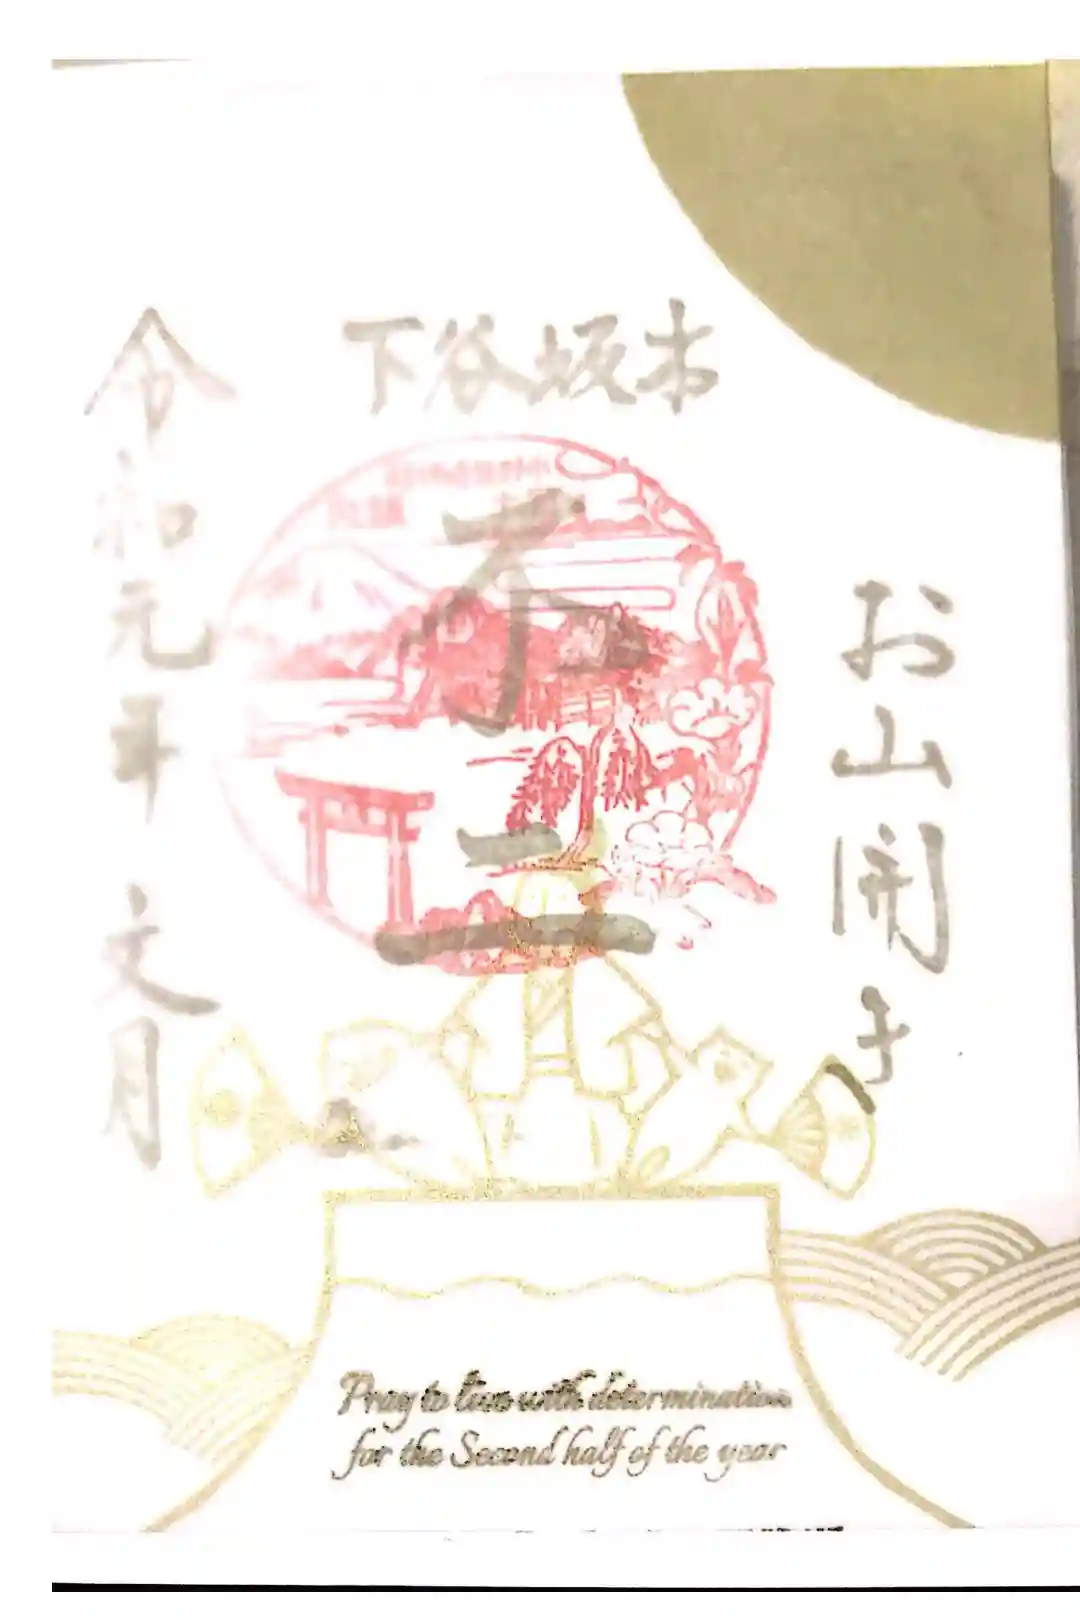 お山開き
下谷坂本
不二
令和元年 文月
Pray to live with determination
for the Second half of the year